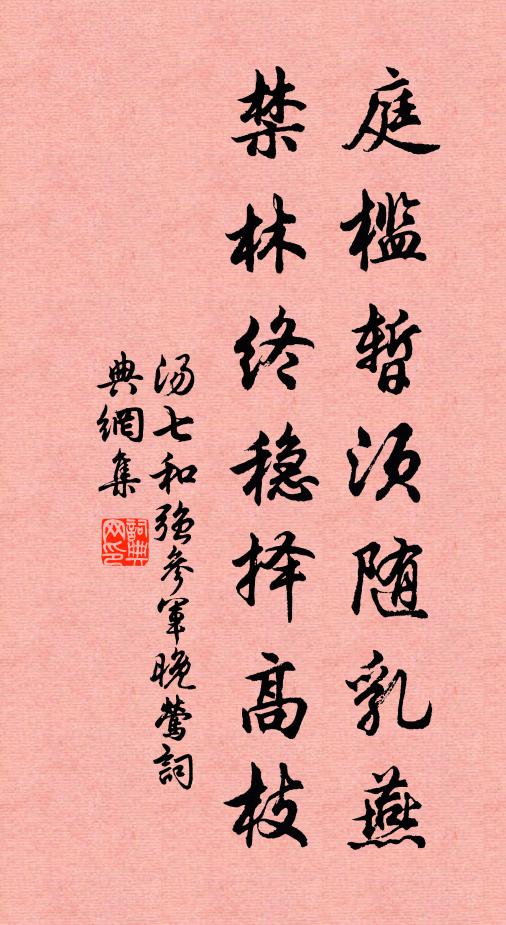 庭槛暂须随乳燕
禁林终稳择高枝
汤七和强参军晚莺词
典網集
詞典網印